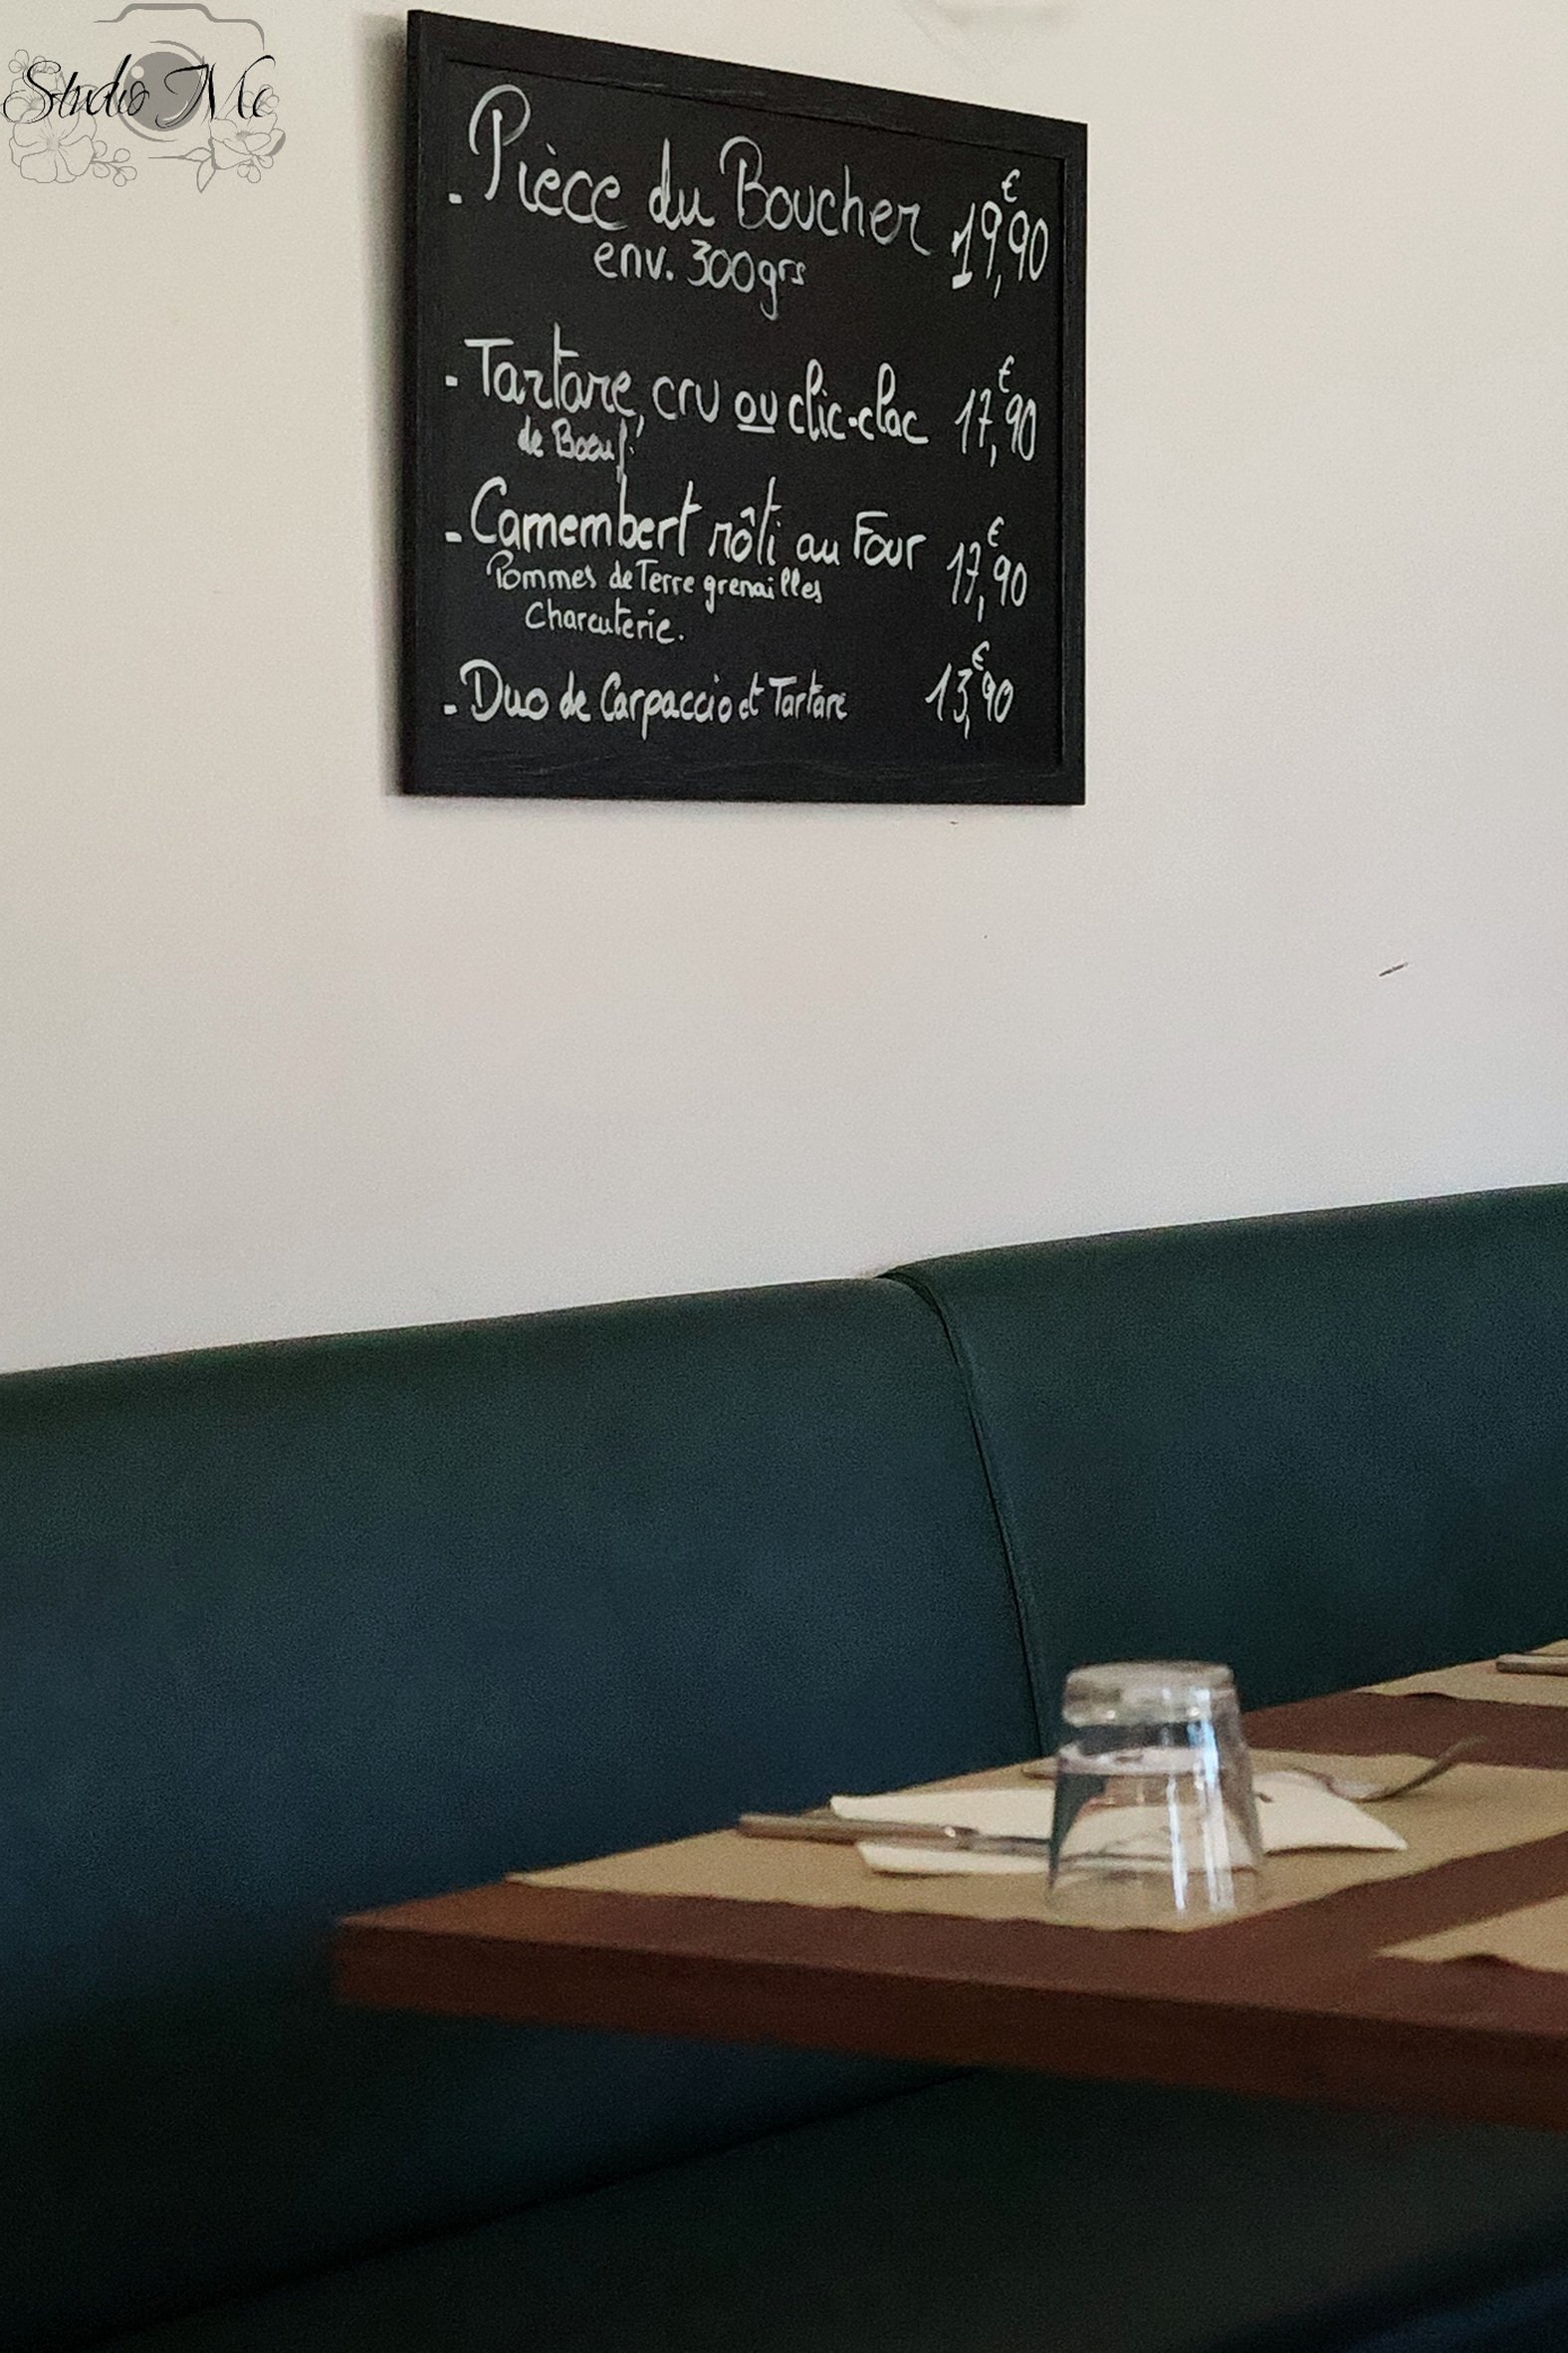 Studio Me
- Pièce du Boucher 19,90€
env. 300grs
- Tartare, cru ou clic-clac 17,90€
de Boeuf
- Camembert rôti au Four 17,90€
Pommes de Terre grenailles
Charcuterie.
- Duo de Carpaccio et Tartare 13,90€